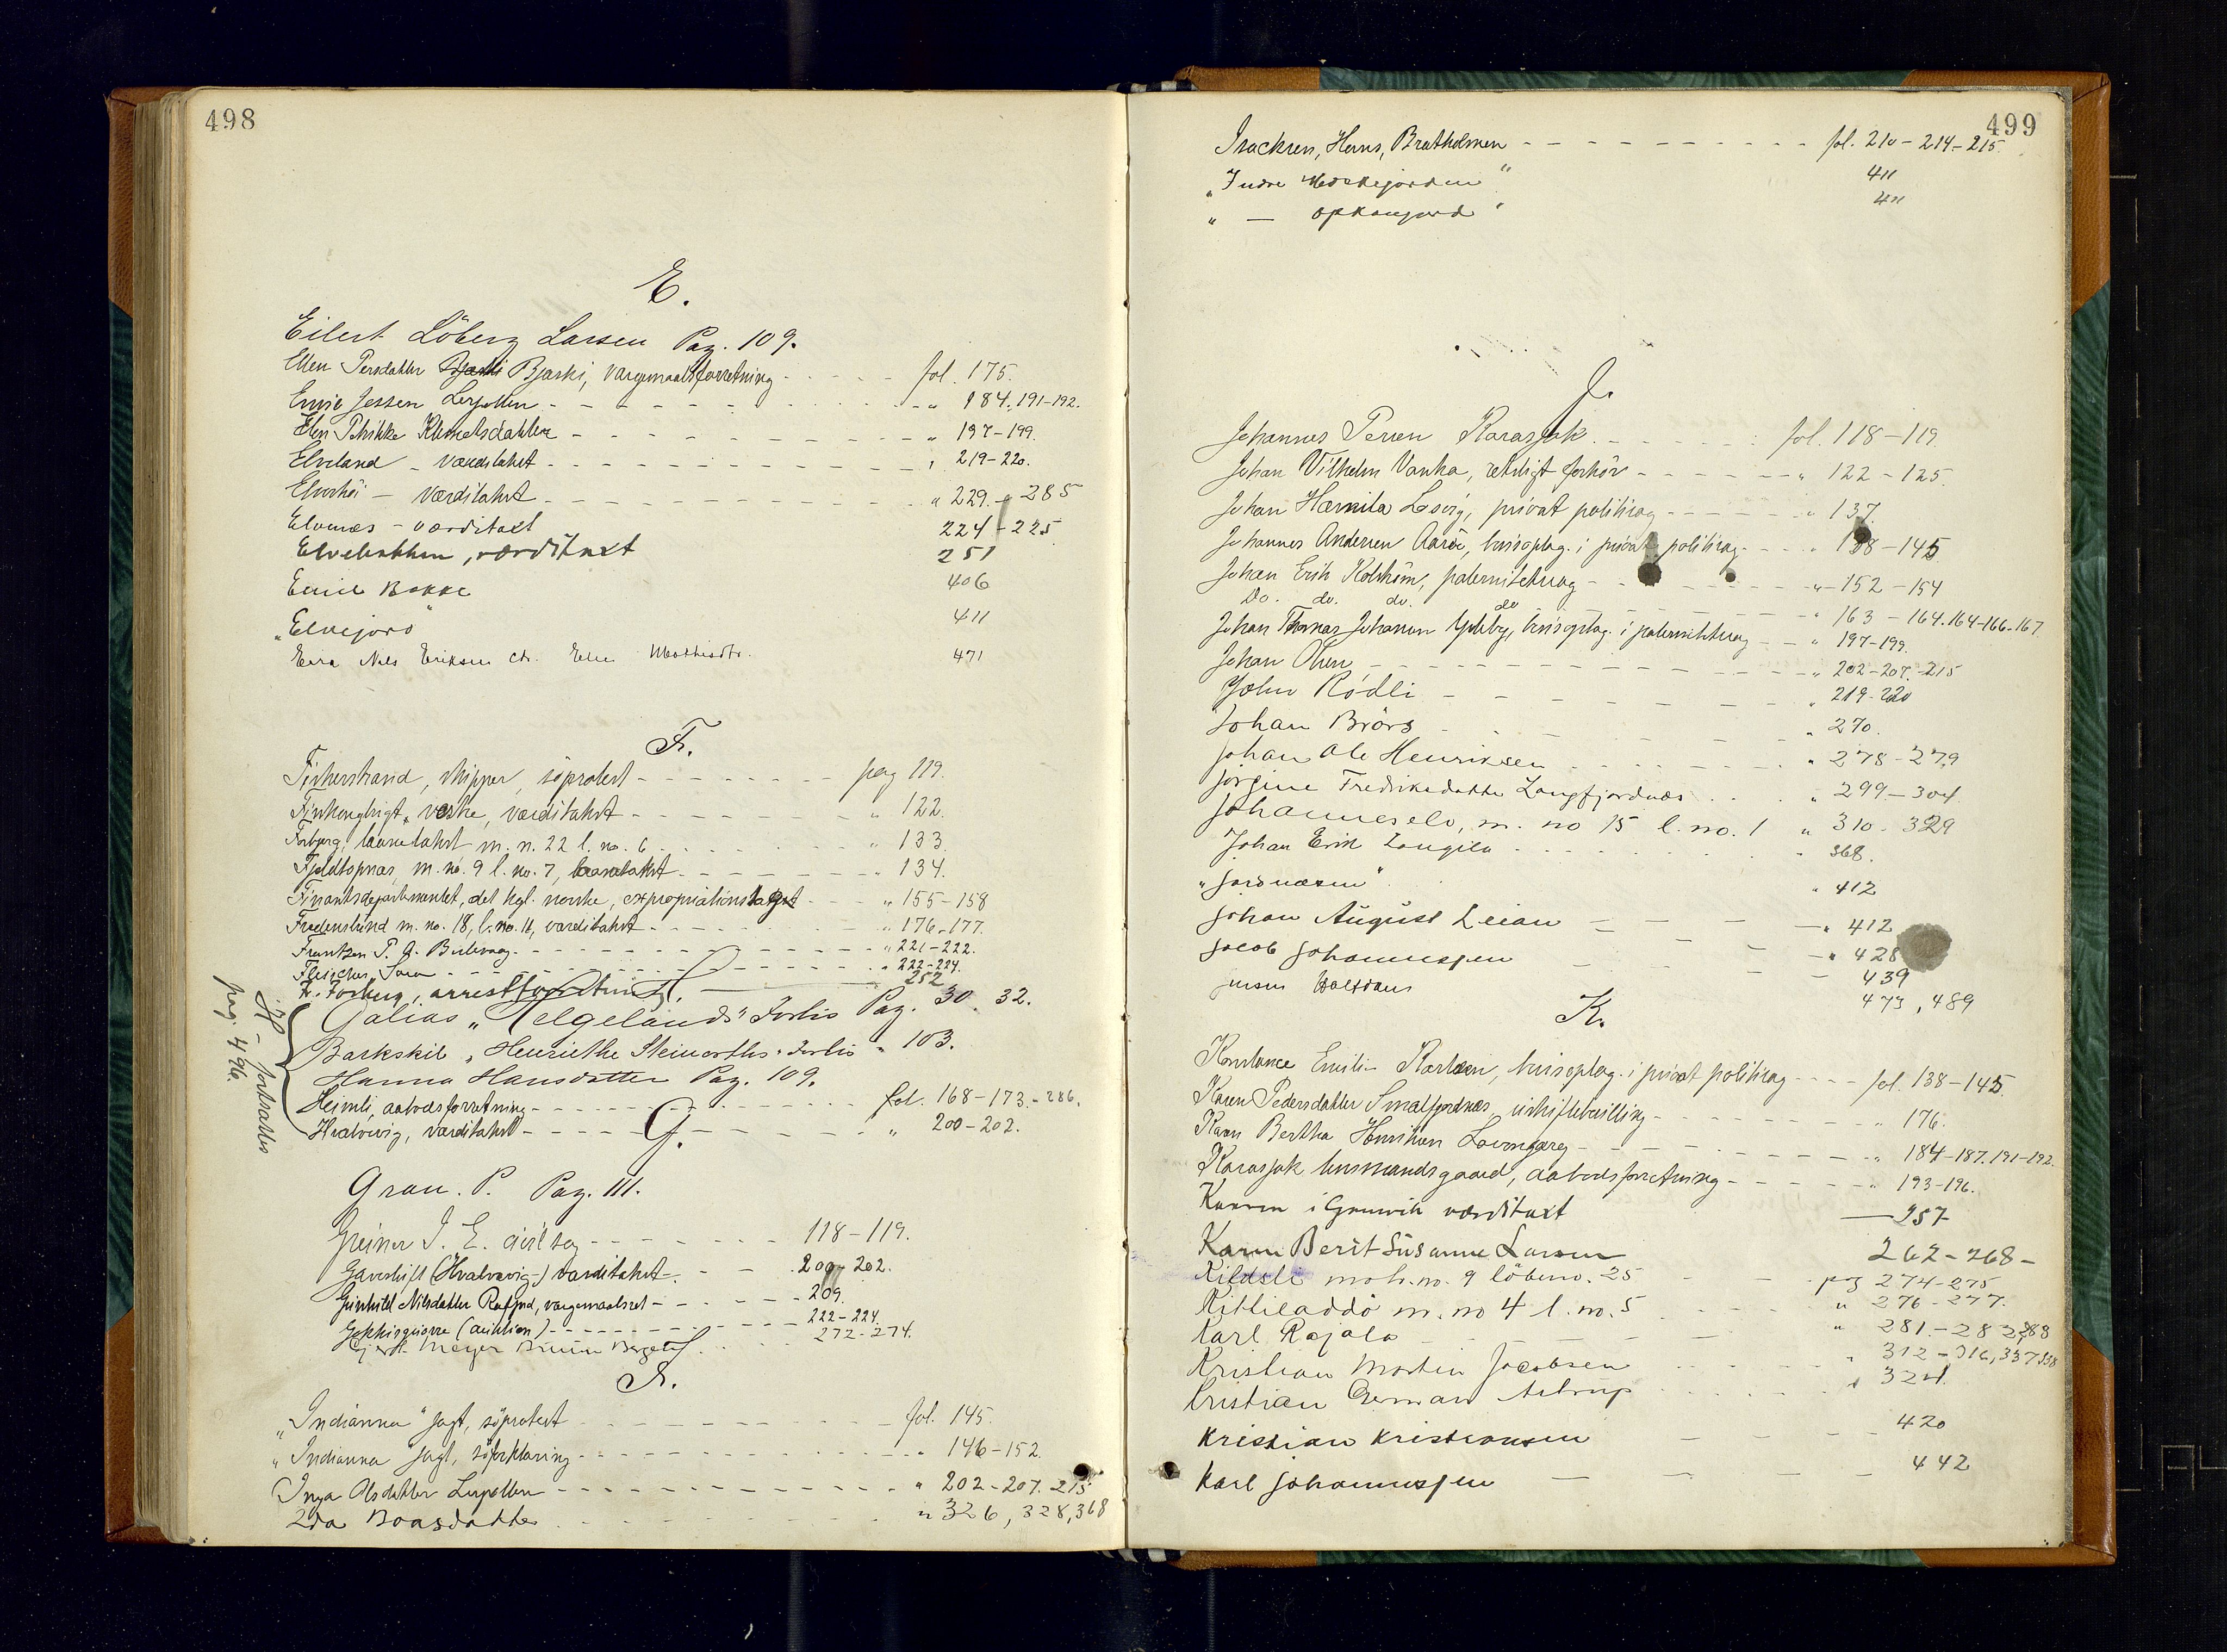 498
E.
Eilert Löberg Larsen Pag. 109.
Ellen Persdatter Bjaski, værgemaalsforretning - - - - - fol. 175.
Emil Jessen Lerpollen - - - - - - - " 184, 191-192.
Elen Klemetsdatter - - - - - - - " 197-199.
Elveland - værditakst - - - - - - - " 219-220.
Elverhöi - Værditakst - - - - - - - " 229. - 285
Elvenæs - værditaxt 224-225
værditaxt 251
Emil Bakke 406
"Elvejord" 411
Eira Nils Eriksen Ellen Mathisdtr. 471
F.
Fiskerstrand, skipper, söprotest - - - - - - pag 119.
værditakst - - - - - - " 122.
Forbjerg, laanetakst m. n. 22 l. no. 6 - - - - - " 133.
Fjeldtopnæs, m. no. 9 l. no. 7, laanetakst - - - - - " 134.
Finantsdepartementet, det kgl. norske, expropriationstakst - - - " 155-158
Fredenslund m. no. 18, l. no. 11, værditakst - - - - - " 176-177.
Frantzen P. A. - - - - - - - " 221-222.
Fleischer, - - - - - - - " 222-224.
252
Galias "Helgelands" Forlis Pag. 30. 32.
Barkskib "Henriethe Forlis " 103.
Hanna Hansdatter Pag. 109.
Heimli, aabodsforretning - - - - - - fol. 168-173. - 286.
Hvalvvig, værditakst - - - - - - " 200-202.
H - fortsættes
pag. 496.
G.
Gran. P. Pag. 111.
Greiner J. E. - - - - - - 118-119.
Gaveskift (Hvalvvig) værditakst - - - 200-202.
Gunhild Nilsdatter værgemaalsret - - - - - 209.
(auktion) - - - - - - 222-224.
Meyer Bruun 272-274.
I.
"Indianna" jagt, söprotest - - - - - - fol. 145.
"Indianna" jagt, söforklaring - - - - - - " 146-152.
Inga Olsdatter Lerpollen - - - - - - " 202-207. 215
Ida Boasdatter - - - - - - " 326, 328, 368
499
Isacksen, Hans, Bratholmen - - - - - - fol. 210 - 214 - 215.
"Indre " 411
" — " 411
J.
Johannes Persen Karasjok. - - - - - fol. 118-119.
Johan Vilhelm Vanka, retsligt forhör - - - - - " 122-125.
Johan privat politisag - - - - - " 137.
Johannes Andersen Aaröe, bevisoptag. i privat politisag - - - " 138-145
Johan Erik Kolström, paternitetssag - - - - - " 152-154
Do. do. do. do - - - - - " 163 - 164. 164-166-167.
Johan Thomas Johansen bevisoptag. i paternitetssag - - " 197-199.
Johan Olsen - - - - - - - " 202-207. -215
John Rödli - - - - - - " 219-220
Johan Brörs - - - - - - " 270.
Johan Ole Henriksen - - - - - " 278-279
Jörgine Fredriksdatter Langfjordnæs . . . " 299-304
Johanneselv, m. no 15 l. no. 1 " 310. 329
Johan Erik - - - - - " 368.
"Jordnæsen" " 412
Johan August Leian — — — — " 412
Jacob Johannessen — — — " 428
439
473, 489
K.
Konstance Emilie Karlsen, bevisoptag. i privat politisag - - - - fol. 138-145.
Karen Pedersdatter Smalfjordnæs, uskiftebevilling - - - - " 176.
Karen Bertha Henriksen - - - - - - " 184-187. 191-192.
Karasjok lensmandsgaard, aabodsforretning - - - - - " 193-196.
værditaxt — 257
Karen Berit Susanne Larsen 262-268-
Kildeli matr. no. 9 löbeno. 25 - - - pag 274-275
m. no 4 l. no. 5 - - - - " 276-277.
Karl Rajala - - - - " 281.-282, 288
Kristian Martin Jacobsen - - - - " 312-316, 337, 338
Kristian Herman Astrup - - - - " 324
Kristian Kristiansen — — — — 420
Karl Johannessen — — — — 442